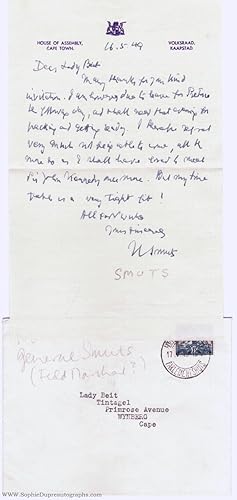 HOUSE OF ASSEMBLY,
CAPE TOWN.
VOLKSRAAD,
KAAPSTAD
26.5.49
Dear Lady Beit
Many thanks for your kind
invitation. I am however due to leave for Pretoria
the following day, and shall need that evening for
packing and getting ready. I therefore regret
very much not being able to come, all the
more so as I should have loved to meet
Sir John Kennedy once more. But my time
table is a very tight fit!
All good wishes
Yours sincerely
JC Smuts
SMUTS
General Smuts
(Field Marshal?)
17
Lady Beit
Tintagel
Primrose Avenue
WYNBERG
Cape
www.SophieDupreautographs.com